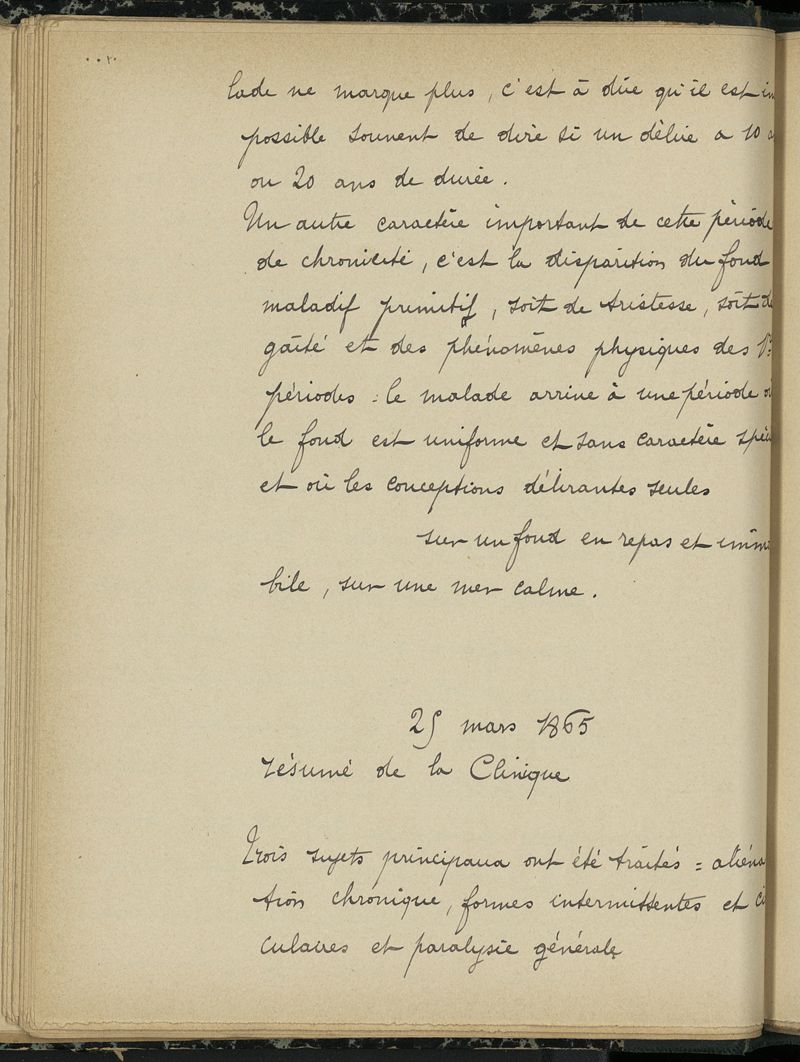 lade ne marque plus, c'est à dire qu'il est im
possible souvent de dire si un délire a 10 a
ou 20 ans de durée.
Un autre caractère important de cette période
de chronicité, c'est la disparition du fond
maladif primitif, soit de tristesse, soit de
gaîté et des phénomènes physiques des
périodes : le malade arrive à une période où
le fond est uniforme et sans caractère spéci
et où les conceptions délirantes seules
sur un fond en repas et immo
bile, sur une mer calme.
25 mars 1865
résumé de la Clinique
Trois sujets principaux ont été traités : aliéna
tion chronique, formes intermittentes et ci
culaires et paralysie générale